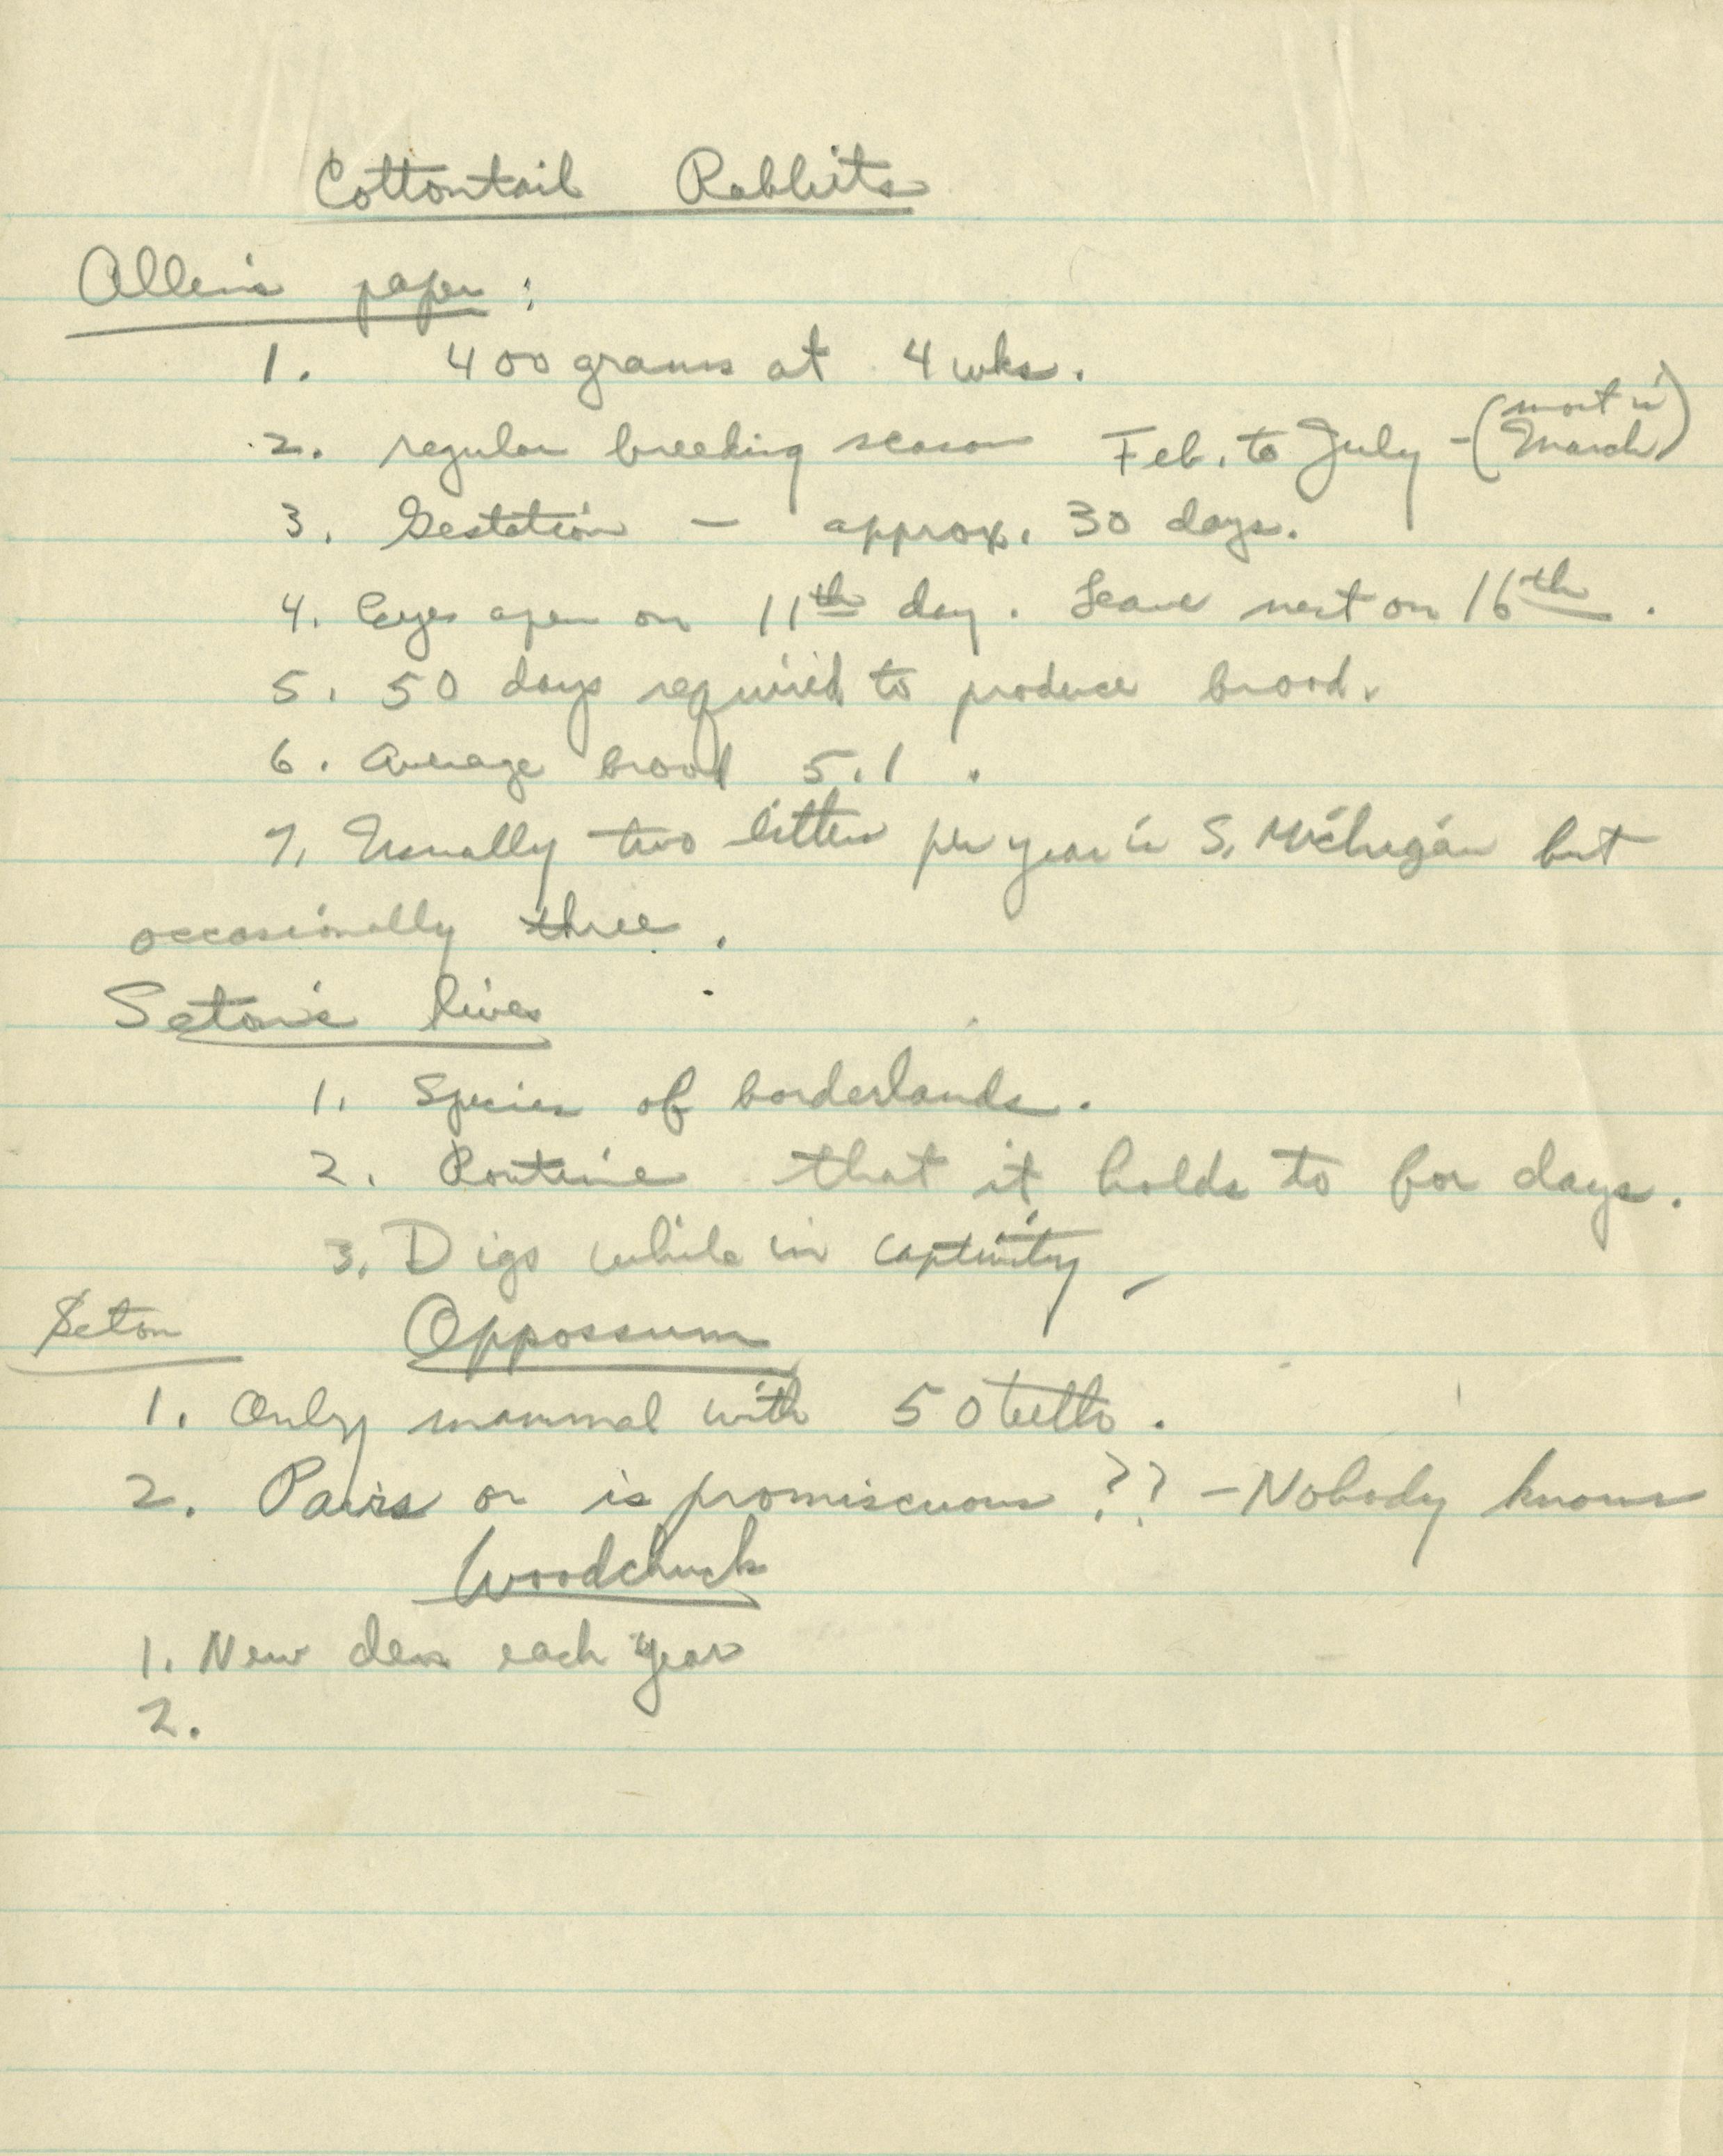 Cottontail Rabbits
Allen's paper :
1. 400 grams at 4 wks.
2. regular breeding season Feb. to July - (most in March)
3. Gestation - approx. 30 days.
4. Eyes open on 11th day. Leave nest on 16th .
5. 50 days required to produce brood.
6. Average brood 5.1 .
7. Usually two litters per year in S. Michigan but
occasionally three .
Seton's lives
1. Species of borderlands.
2. Routine that it holds to for days.
3. Digs while in captivity -
Seton Oppossum
1. Only mammal with 50 teeth .
2. Pairs or is promiscuous ?? - Nobody knows
Woodchuck
1. New den each year
2.